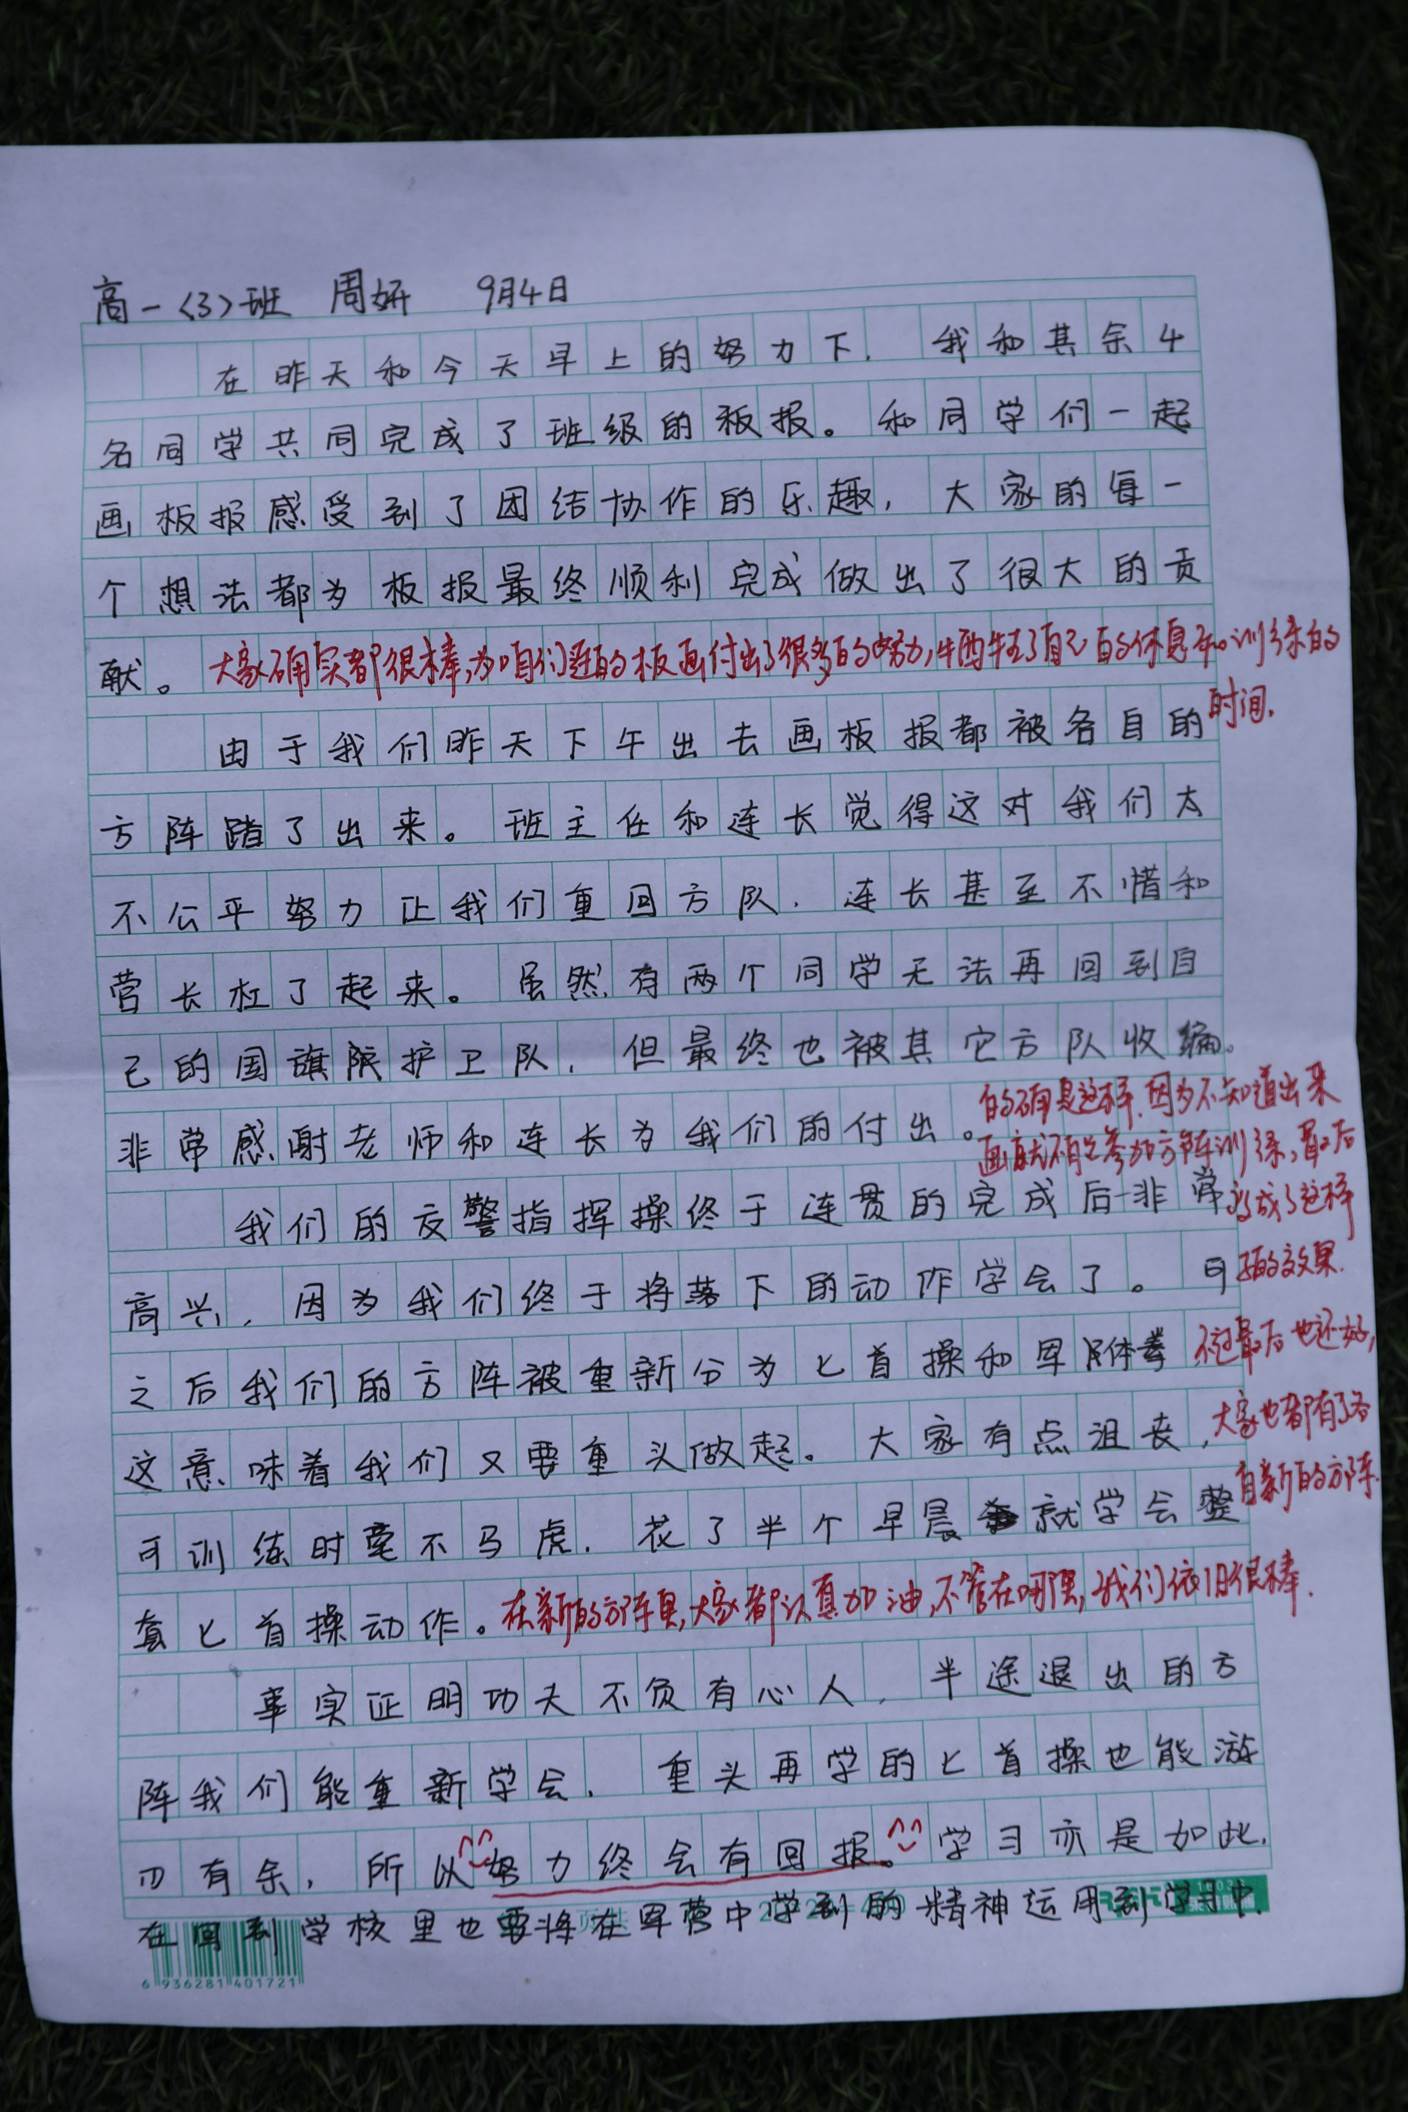 高一〈3〉班 周妍 9月4日
在昨天和今天早上的努力下，我和其余4
名同学共同完成了班级的板报。和同学们一起
画板报感受到了团结协作的乐趣，大家的每一
个想法都为板报最终顺利完成做出了很大的贡
献。大家确实都很棒,为咱们连的板画付出了很多的努力,牺牲了自己的休息和训练的
时间.
由于我们昨天下午出去画板报都被各自的
方阵踏了出来。班主任和连长觉得这对我们太
不公平努力让我们重回方队，连长甚至不惜和
营长杠了起来。虽然有两个同学无法再回到自
己的国旗护卫队，但最终也被其它方队收编。
非常感谢老师和连长为我们的付出。
的确是这样.因为不知道出来
画就不用参加方阵训练,最后
造成了这样
的效果.
不过最后也还好,
大家也都有了各
自新的方阵.
我们的交警指挥操终于连贯的完成后非常
高兴，因为我们终于将落下的动作学会了。可
之后我们的方阵被重新分为匕首操和军体拳
这意味着我们又要重头做起。大家有点沮丧，
可训练时毫不马虎，花了半个早晨就学会整
套匕首操动作。在新的方阵里,大家都认真加油,不管在哪里,我们依旧很棒.
事实证明功夫不负有心人，半途退出的方
阵我们能重新学会，重头再学的匕首操也能游
刃有余，所以努力终会有回报。学习亦是如此，
在回到学校里也要将在军营中学到的精神运用到学习中.
6 936281 401721